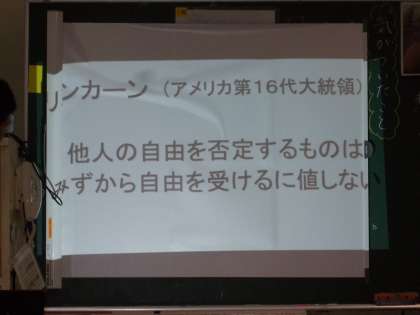 リンカーン （アメリカ第16代大統領）
他人の自由を否定するものは
みずから自由を受けるに値しない
気がついたこと